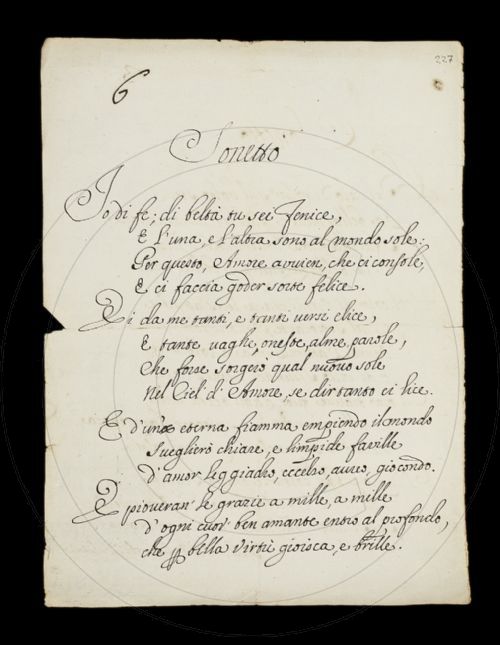 227
6
Sonetto
Io di fe; di beltà tu sei Fenice,
E l'una, e l'altra sono al mondo sole:
Per questo, Amore avvien, che ci console,
E ci faccia goder sorte felice.
Ei da me tanti, e tanti versi elice,
E tante vaghe, oneste, alme parole,
Che forse sorgerò qual nuovo sole
Nel Ciel' d' Amore, se dir tanto ci lice.
E d'una eterna fiamma empiendo il mondo
Sveglierò chiare, e limpide faville
d'amor leggiadro, eccelso, aureo, giocondo.
E pioveran' le grazie a mille, a mille
d'ogni cuor' ben amante entro al profondo,
che bella virtù gioisca, e brille.